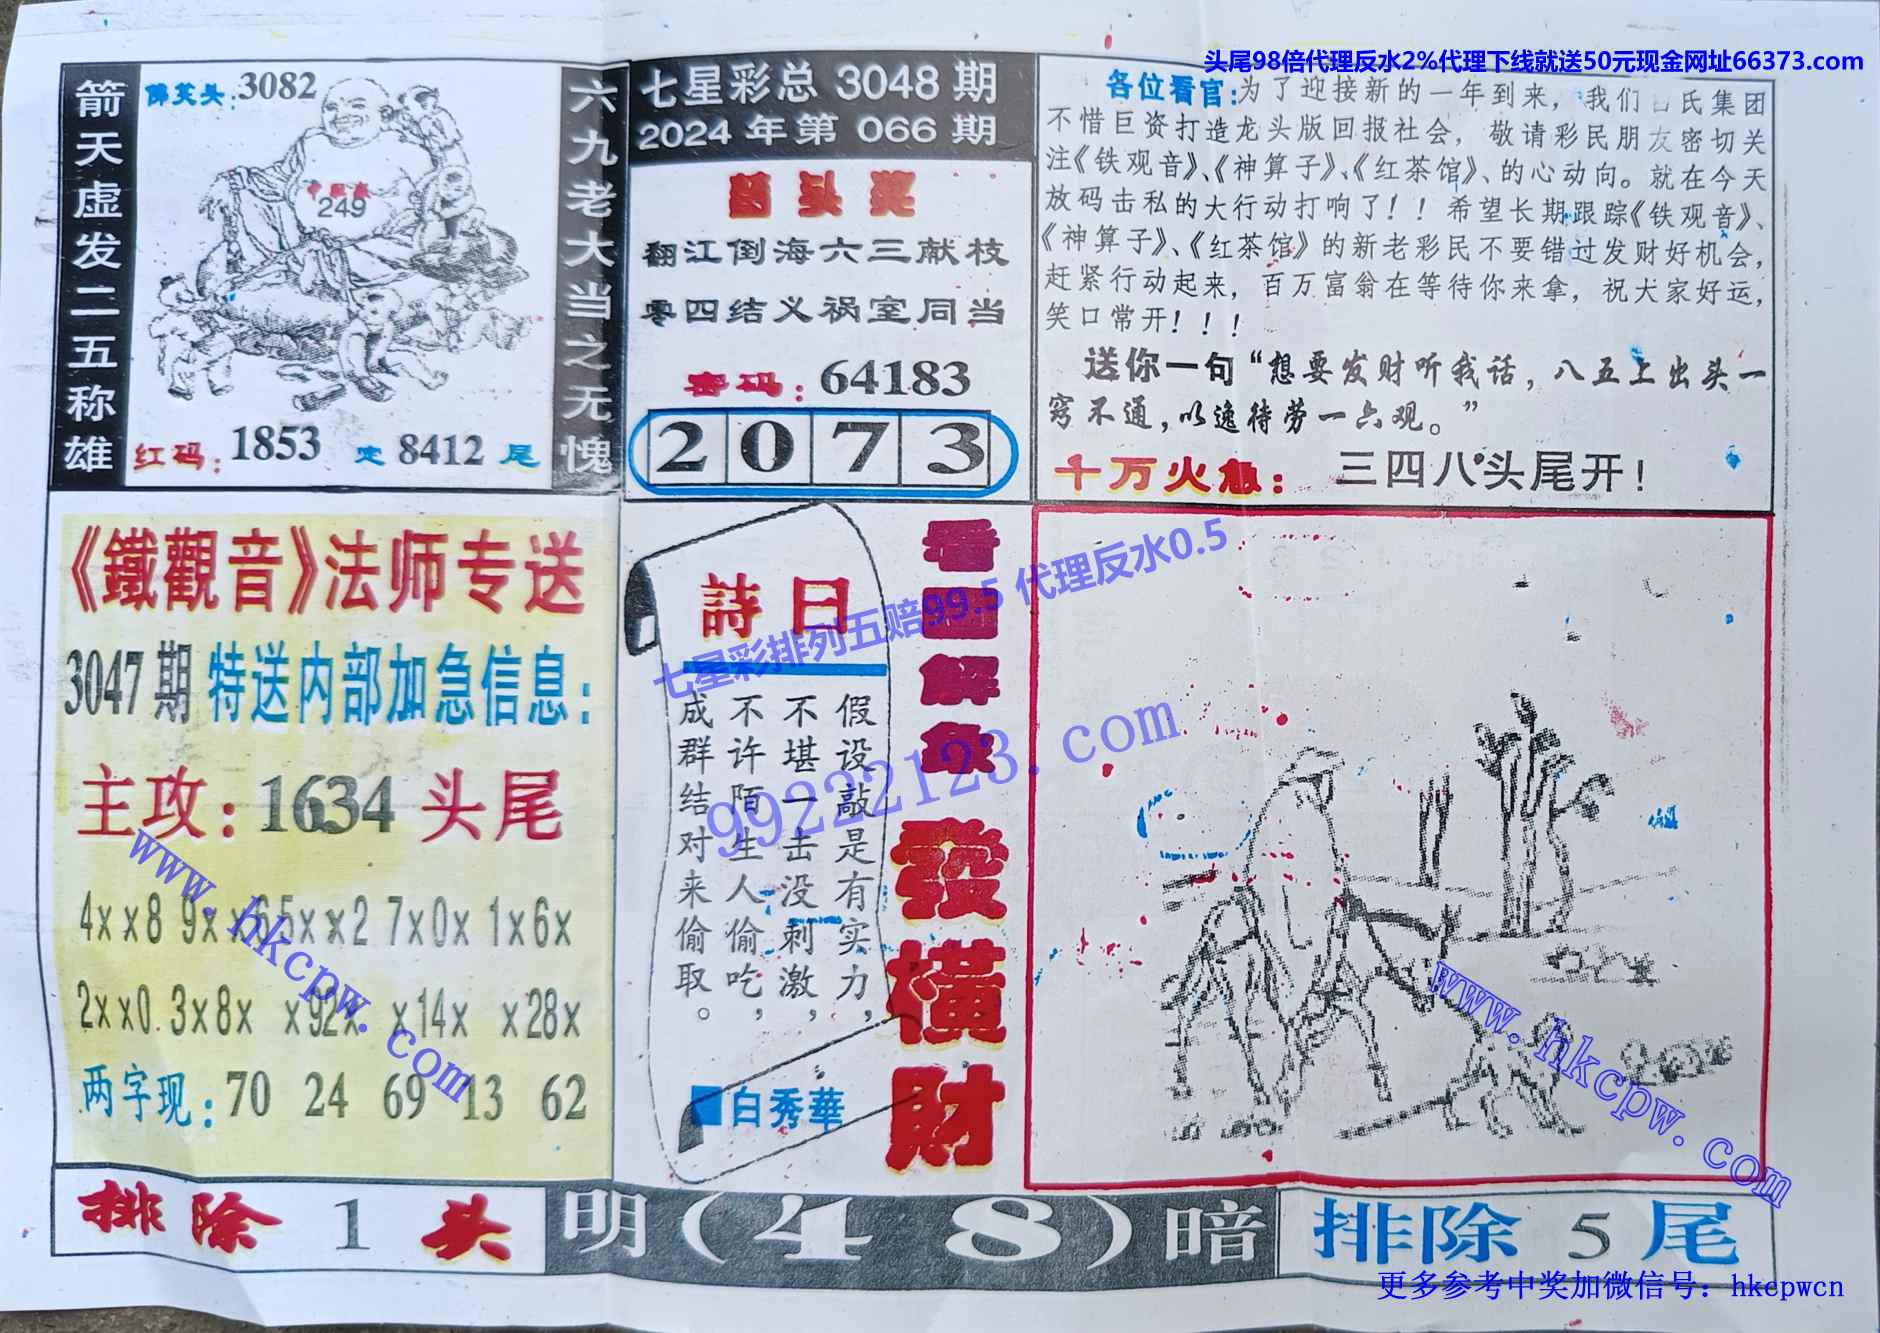 头尾98倍代理反水2%代理下线就送50元现金网址66373.com
箭天虚发二五称雄
佛笑头:3082
中肚脐
249
红码:1853 定 8412 尾
六九老大当之无愧
七星彩总 3048 期
2024 年第 066 期
翻江倒海六三献枝
零四结义祸室同当
密码:64183
2 0 7 3
各位看官:为了迎接新的一年到来,我们 氏集团
不惜巨资打造龙头版回报社会,敬请彩民朋友密切关
注《铁观音》、《神算子》、《红茶馆》、的心动向。就在今天
放码击私的大行动打响了!!希望长期跟踪《铁观音》、
《神算子》、《红茶馆》的新老彩民不要错过发财好机会,
赶紧行动起来,百万富翁在等待你来拿,祝大家好运,
笑口常开!!!
送你一句“想要发财听我话,八五上出头一
窍不通,以逸待劳一六观。”
十万火急: 三四八头尾开!
《鐵觀音》法师专送
3047期 特送内部加急信息:
主攻:1634头尾
4xx8 9xx6 5xx2 7x0x 1x6x
2xx0 3x8x x92x x14x x28x
两字现:70 24 69 13 62
詩曰
假设敲是有实力,
不堪一击没刺激,
不许陌生人偷吃,
成群结对来偷取。
白秀華
看图解象
發橫財
七星彩排列五赔99.5 代理反水0.5
99222123.com
www.hkcpw.com
www.hkcpw.com
排除 1 头
明(48)暗
排除 5 尾
更多参考中奖加微信号:hkcpwcn